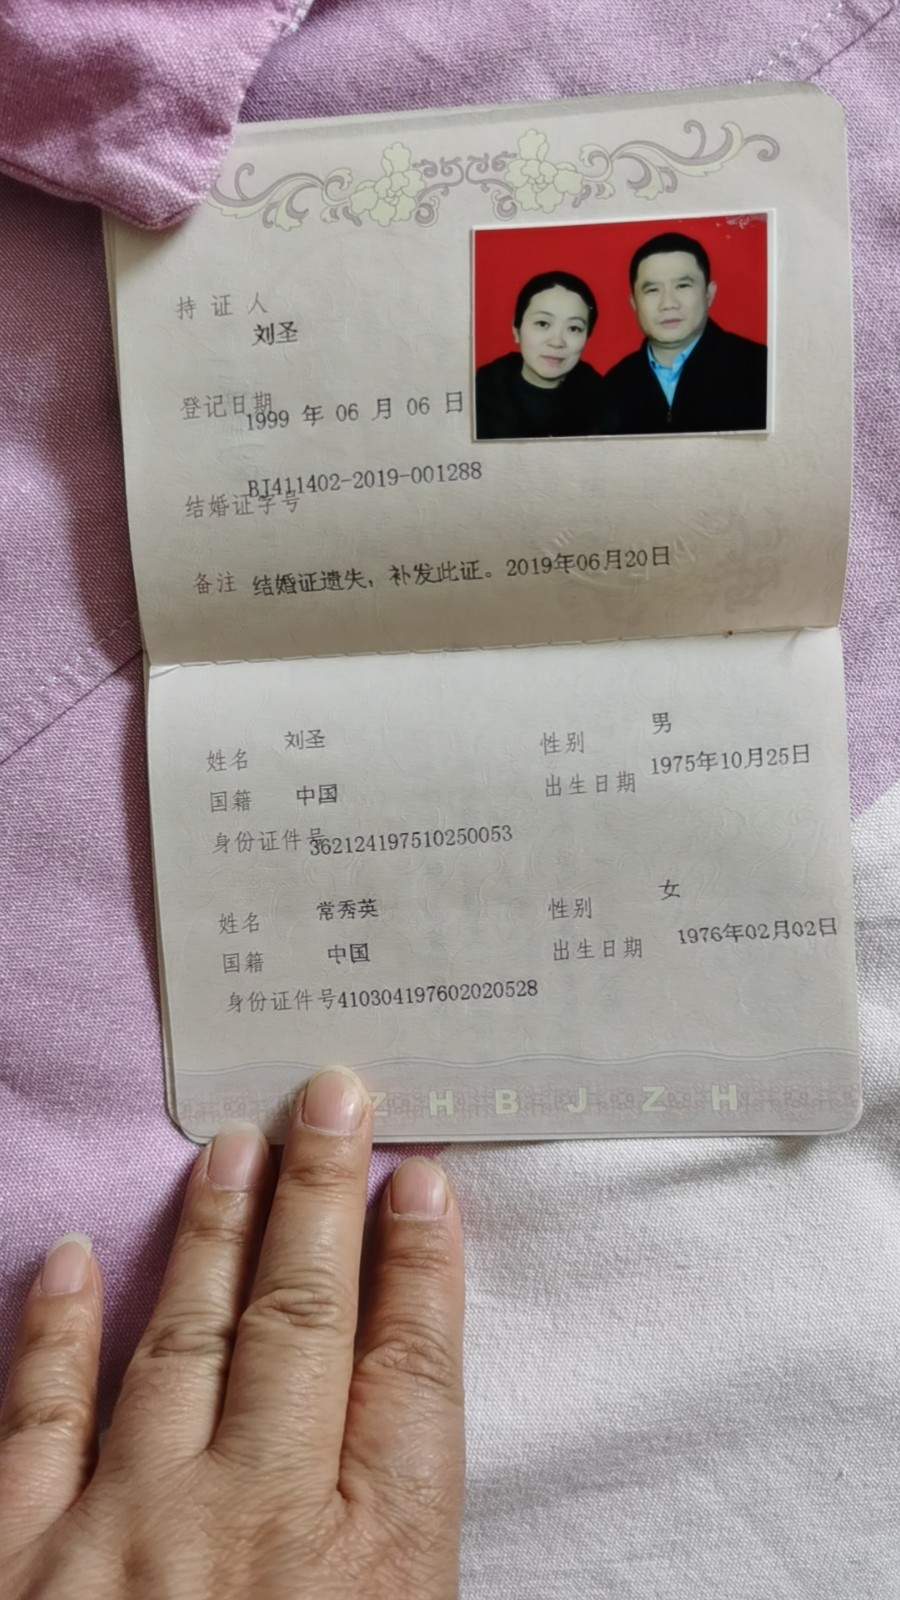 持证人
刘圣
登记日期
1999 年 06 月 06 日
BJ411402-2019-001288
结婚证字号
备注 结婚证遗失，补发此证。2019年06月20日
姓名 刘圣 性别 男
国籍 中国 出生日期 1975年10月25日
身份证件号 362124197510250053
姓名 常秀英 性别 女
国籍 中国 出生日期 1976年02月02日
身份证件号410304197602020528
Z H B J Z H